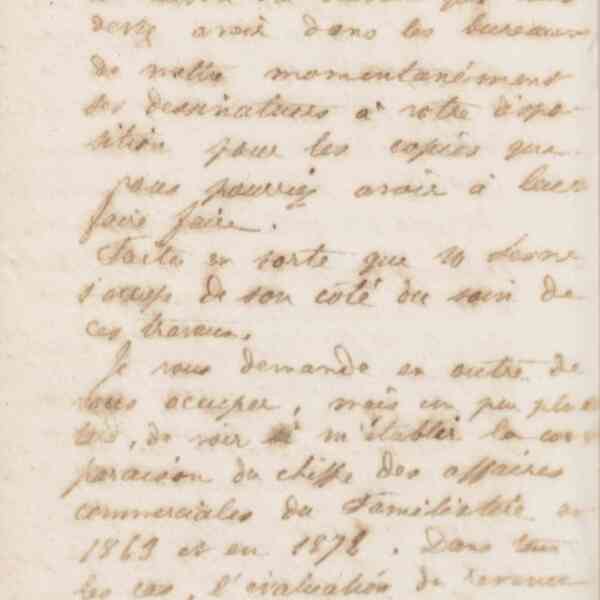 devez avoir dans les bureaux
de mettre momentanément
les dessinateurs à votre dispo-
sition pour les copies que
vous pourriez avoir à leur
faire faire.
Faites en sorte que
s'occupe de son côté du soin de
ces travaux.
Je vous demande en outre de
vous occuper, mais un peu plus
tard, de voir à m'établir la com
paraison du chiffre des affaires
commerciales du Familistère en
1869 et en 1878. Dans tous
les cas, l'évaluation de